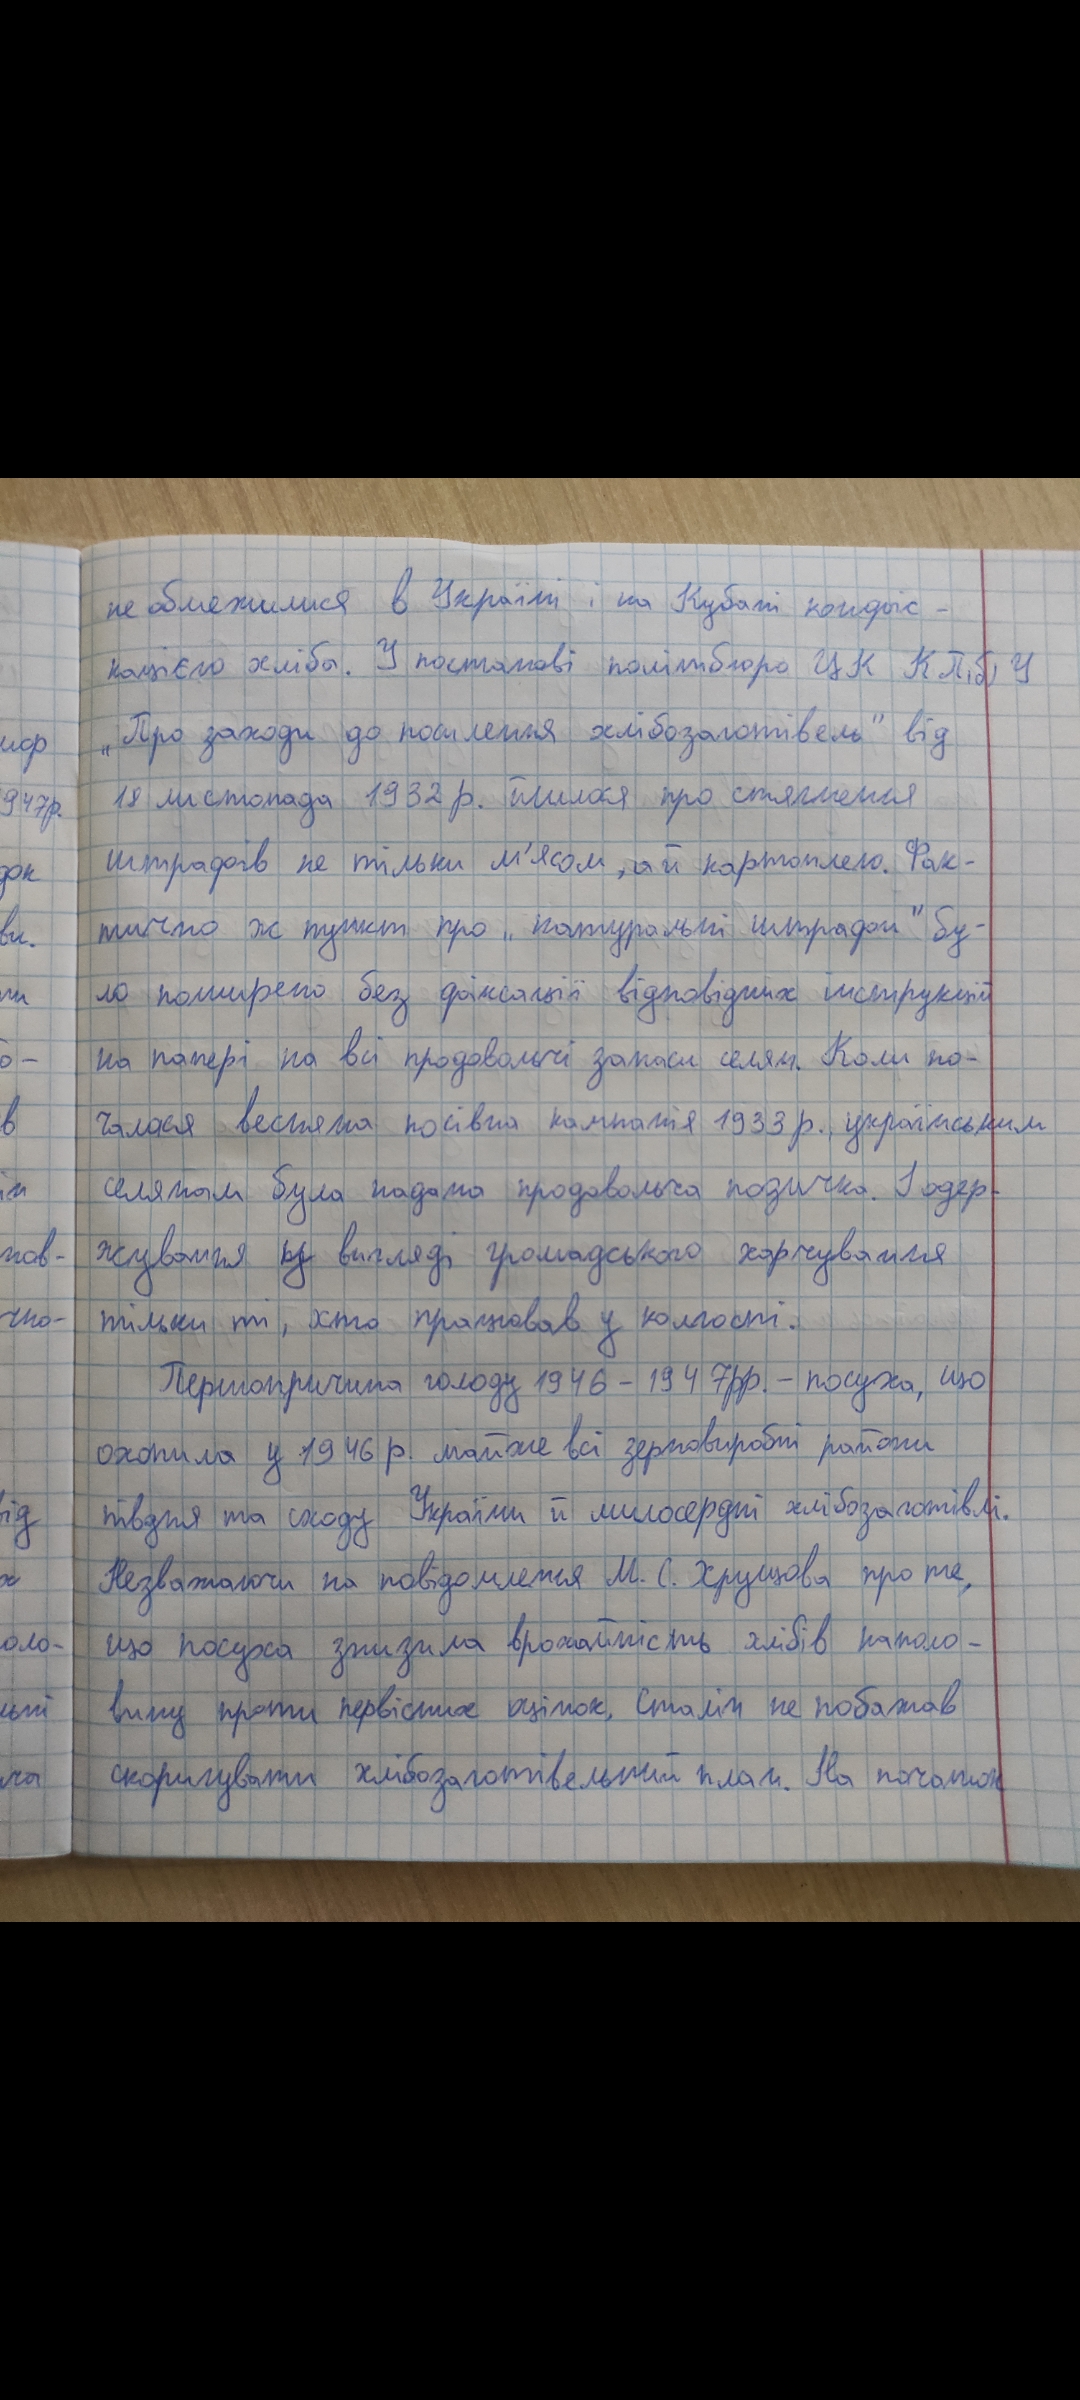 не обмежилися в Україні і на Кубані конфіс-
кацією хліба. У постанові політбюро ЦК КП(б)У
„Про заходи до посилення хлібозаготівель" від
18 листопада 1932 р. йшлося про стягнення
штрафів не тільки м'ясом, а й картоплею. Фак-
тично ж пункт про „натуральні штрафи" бу-
ло поширено без фіксації відповідних інструкцій
на папері на всі продовольчі запаси селян. Коли по-
чалася весняна посівна кампанія 1933 р., українським
селянам була надана продовольча позичка. Її одер-
жування у вигляді громадського харчування
тільки ті, хто працював у колгоспі.
Першопричина голоду 1946 – 1947 рр. – посуха, що
охопила у 1946 р. майже всі зерновиробні райони
півдня та сходу України й милосердні хлібозаготівлі.
Незважаючи на повідомлення М. С. Хрущова про те,
що посуха знизила врожайність хлібів наполо-
вину проти первісних оцінок, Сталін не побажав
скоригувати хлібозаготівельний план. На початок
1947р.
док
ви.
о-
в
нов-
чно-
від
х
оло-
льні